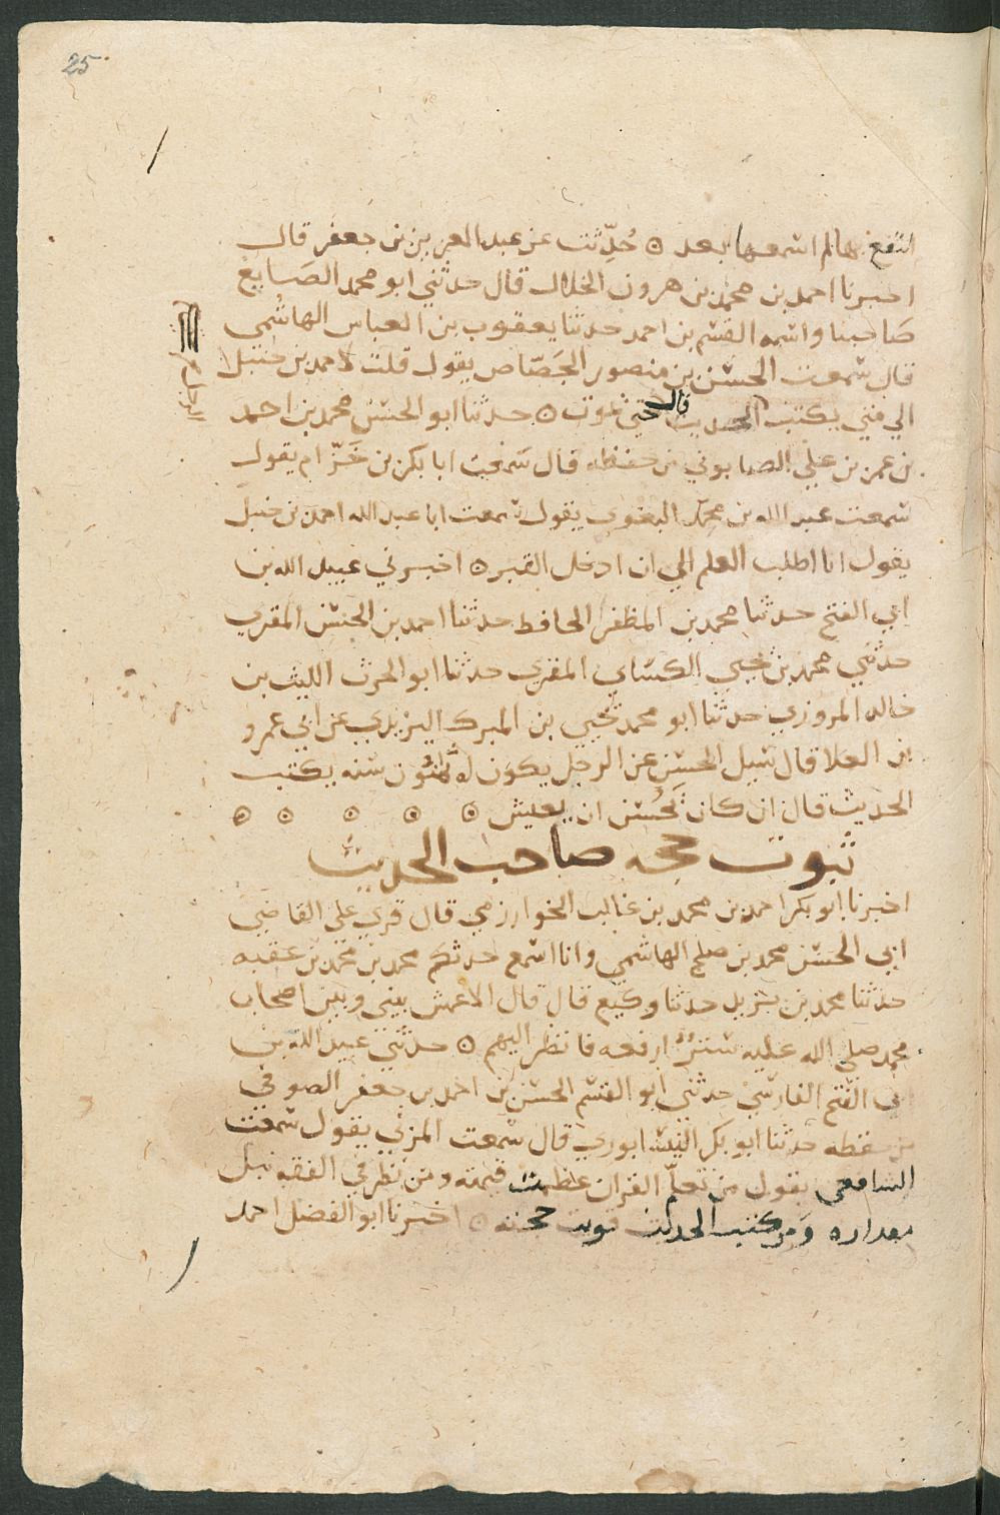 25
انتفع بها لم اسمعها بعد ⊙ حُدِّثت عن عبد العزيز بن جعفر قال
اخبرنا احمد بن محمد بن هرون الخلال قال حدثني ابو محمد الصَايغ
صَاحبنا واسمه القسم بن احمد حدثنا يعقوب بن العباس الهاشمي
قال سمعت الحسن بن منصور الجَصّاص يقول قلت لاحمد بن حنبل
الي متي يكتب الحديث قال حتي يموت ⊙ حدثنا ابو الحسن محمد بن احمد
بن عمر بن علي الصابوني من حفظه قال سمعت ابا بكر بن خزام يقول
سمعت عبد الله بن محمد البغوي يقول سمعت ابا عبد الله احمد بن حنبل
يقول انا اطلب العلم الي ان ادخل القبر ⊙ اخبرني عبيد الله بن
ابي الفتح حدثنا محمد بن المظفر الحافظ حدثنا احمد بن الحسن المقري
حدثني محمد بن يحيي الكسَاي المقري حدثنا ابو الحرث الليث بن
خالد المروزي حدثنا ابو محمد يحيي بن المبرك اليزيدي عن ابي عمرو
بن العلا قال سيل الحسن عن الرجل يكون له ثمنون سنه يكتب
الحديث قال ان كان يَحْسُن ان يعيش ⊙ ⊙ ⊙ ⊙ ⊙
ثبوت حجه صاحب الحديث
اخبرنا ابو بكر احمد بن محمد بن غالب الخوارزمي قال قري علي القاضي
ابي الحسن محمد بن صلح الهاشمي وانا اسمع حدثكم محمد بن محمد بن عقبه
حدثنا محمد بن يزيد حدثنا وكيع قال قال الاعمش بيني وبين اصحاب
محمد صلي الله عليه سترٌ ارفعه فانظر اليهم ⊙ حدثني عبيد الله بن
ابي الفتح الفارسي حدثني ابو القسم الحسن بن احمد بن جعفر الصوفي
من حفظه حدثنا ابو بكر النيسابوري قال سمعت المزني يقول سمعت
الشافعي يقول من تعلّم القران عظمت قيمته ومن نظر في الفقه نبل
مقداره وَمن كتب الحديث قويت حجته ⊙ اخبرنا ابو الفضل احمد